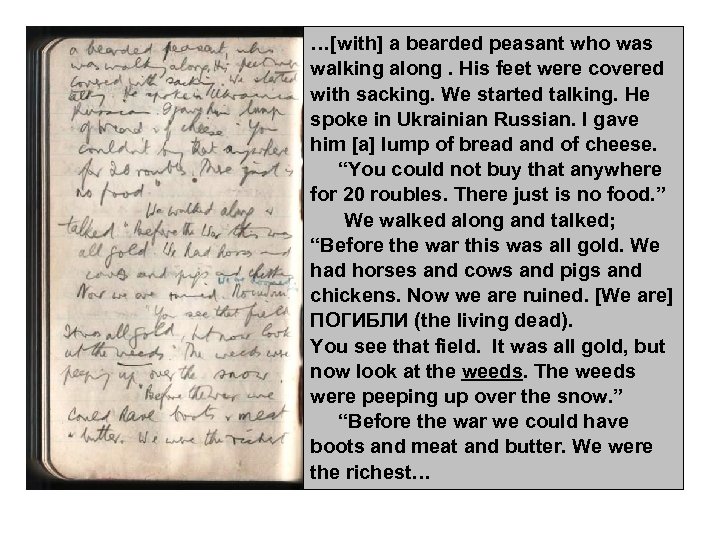 a bearded peasant, who
was walking along. His feet were
covered with sacking. We started
talking. He spoke in Ukrainian
Russian. I gave him lump
of bread & of cheese. "You
couldn't buy that anywhere
for 20 roubles. There just is
no food."
We walked along &
talked. "Before the War this was
all gold. We had horses and
cows and pigs and chickens
we are doomed.
Now we are ruined.
"You see that field
It was all gold, but now look
at the weeds." The weeds were
peeping up over the snow.
"Before the war we
could have boots & meat
& butter. We were the richest
…[with] a bearded peasant who was
walking along . His feet were covered
with sacking. We started talking. He
spoke in Ukrainian Russian. I gave
him [a] lump of bread and of cheese.
“You could not buy that anywhere
for 20 roubles. There just is no food.”
We walked along and talked;
“Before the war this was all gold. We
had horses and cows and pigs and
chickens. Now we are ruined. [We are]
ПОГИБЛИ (the living dead).
You see that field. It was all gold, but
now look at the weeds. The weeds
were peeping up over the snow.”
“Before the war we could have
boots and meat and butter. We were
the richest…